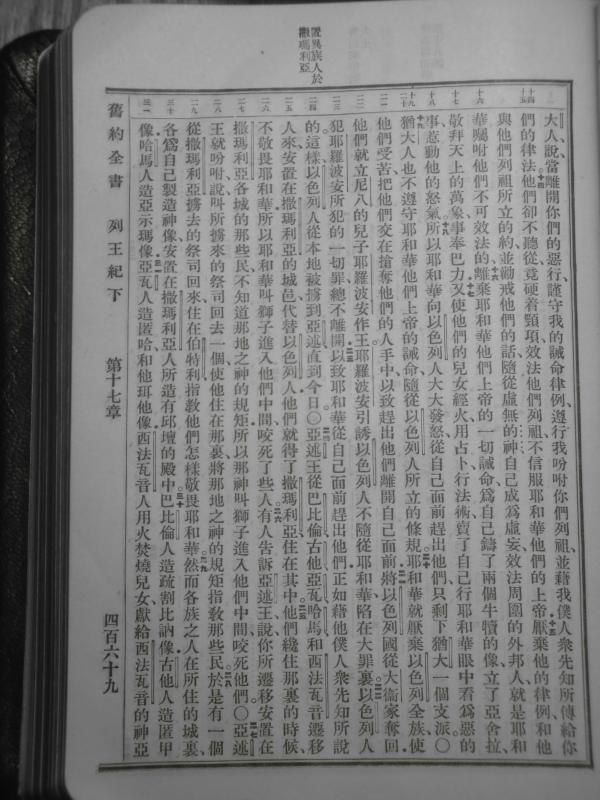 置異族人於
撒瑪利亞
大人說當離開你們的惡行謹守我的誡命律例遵行我吩咐你們列祖並藉我僕人衆先知所傳給你
們的律法他們卻不聽從竟硬着頸項效法他們列祖不信服耶和華他們的上帝厭棄他的律例和他
與他們列祖所立的約並勸戒他們的話隨從虛無的神自己成爲虛妄效法周圍的外邦人就是耶和
華囑咐他們不可效法的離棄耶和華他們上帝的一切誡命爲自己鑄了兩個牛犢的像立了亞舍拉
敬拜天上的萬象事奉巴力又使他們的兒女經火用占卜行法術賣了自己行耶和華眼中看爲惡的
事惹動他的怒氣所以耶和華向以色列人大大發怒從自己面前趕出他們只剩下猶大一個支派〇
猶大人也不遵守耶和華他們上帝的誡命隨從以色列人所立的條規耶和華就厭棄以色列全族使
他們受苦把他們交在搶奪他們的人手中以致趕出他們離開自己面前將以色列國從大衞家奪回
他們就立尼八的兒子耶羅波安作王耶羅波安引誘以色列人不隨從耶和華陷在大罪裏以色列人
犯耶羅波安所犯的一切罪總不離開以致耶和華從自己面前趕出他們正如藉他僕人衆先知所說
的這樣以色列人從本地被擄到亞述直到今日〇亞述王從巴比倫古他亞瓦哈馬和西法瓦音遷移
人來安置在撒瑪利亞的城邑代替以色列人他們就得了撒瑪利亞住在其中他們纔住那裏的時候
不敬畏耶和華所以耶和華叫獅子進入他們中間咬死了些人有人告訴亞述王說你所遷移安置在
撒瑪利亞各城的那些民不知道那地之神的規矩所以那神叫獅子進入他們中間咬死他們〇亞述
王就吩咐說叫所擄來的祭司回去一個使他住在那裏將那地之神的規矩指敎那些民於是有一個
從撒瑪利亞擄去的祭司回來住在伯特利指敎他們怎樣敬畏耶和華然而各族之人在所住的城裏
各爲自己製造神像安置在撒瑪利亞人所造有邱壇的殿中巴比倫人造疏割比訥像古他人造匿甲
像哈馬人造亞示瑪像亞瓦人造匿哈和他珥他像西法瓦音人用火焚燒兒女獻給西法瓦音的神亞
舊約全書 列王紀下 第十七章 四百六十九